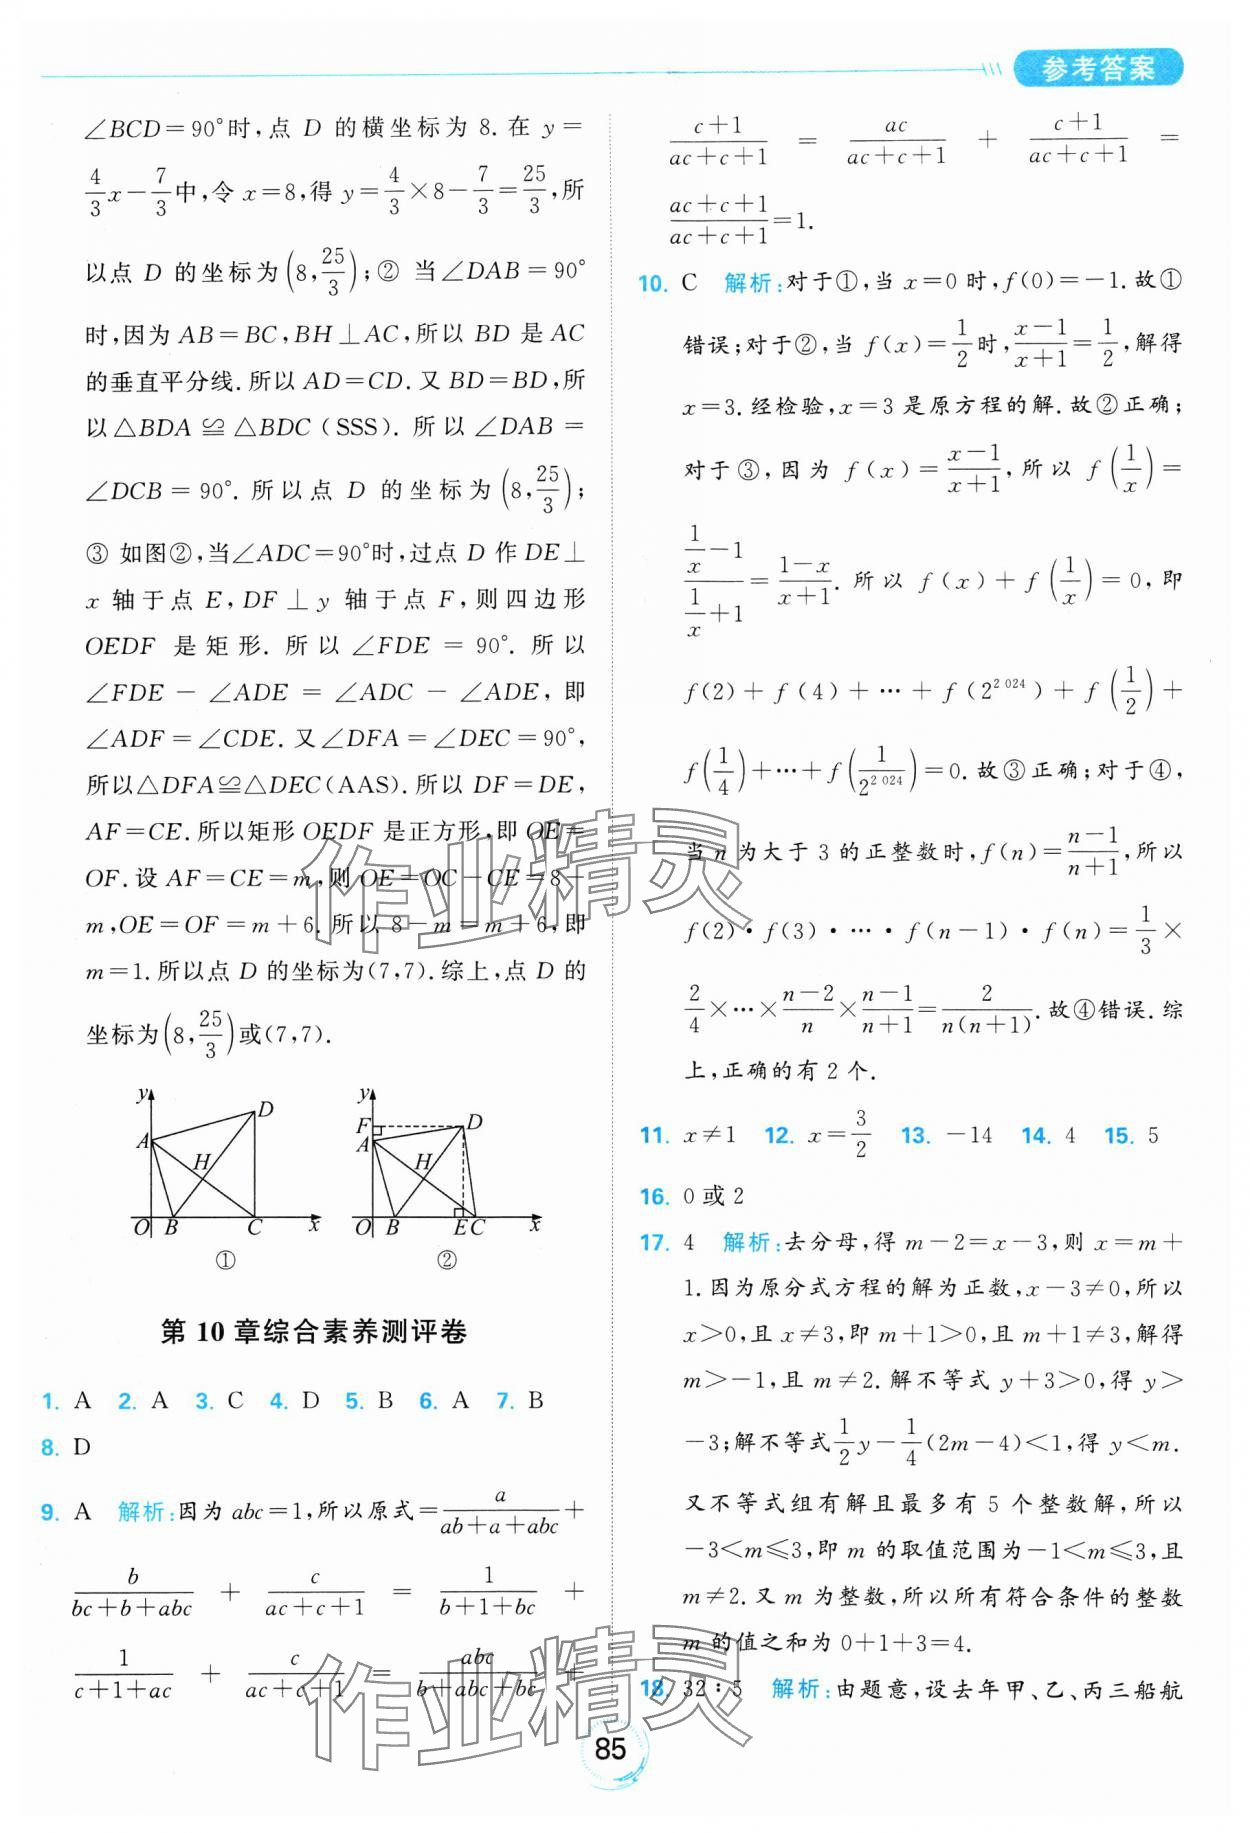 参考答案
∠BCD=90°时,点 D 的横坐标为 8. 在 y=
4/3 x-7/3中,令 x=8,得 y=4/3×8-7/3=25/3,所
以点 D 的坐标为(8,25/3);② 当∠DAB=90°
时,因为 AB=BC,BH⊥AC,所以 BD 是 AC
的垂直平分线. 所以 AD=CD. 又 BD=BD,所
以△BDA≌△BDC(SSS). 所以∠DAB=
∠DCB=90°. 所以点 D 的坐标为(8,25/3);
③ 如图②,当∠ADC=90°时,过点 D 作 DE⊥
x 轴于点 E,DF⊥y 轴于点 F,则四边形
OEDF 是矩形. 所以∠FDE=90°. 所以
∠FDE-∠ADE=∠ADC-∠ADE,即
∠ADF=∠CDE. 又∠DFA=∠DEC=90°,
所以△DFA≌△DEC(AAS). 所以 DF=DE,
AF=CE. 所以矩形 OEDF 是正方形,即 OE=
OF. 设 AF=CE=m,则 OE=OC-CE=8-
m,OE=OF=m+6. 所以 8-m=m+6,即
m=1. 所以点 D 的坐标为(7,7). 综上,点 D 的
坐标为(8,25/3)或(7,7).
y A D H O B C x
①
y F A D H O B E C x
②
第 10 章综合素养测评卷
1. A 2. A 3. C 4. D 5. B 6. A 7. B
8. D
9. A 解析:因为 abc=1,所以原式=a/(ab+a+abc)+
b/(bc+b+abc)+c/(ac+c+1)=1/(b+1+bc)+
1/(c+1+ac)+c/(ac+c+1)=abc/(b+abc+bc)+
(c+1)/(ac+c+1)=ac/(ac+c+1)+(c+1)/(ac+c+1)=
(ac+c+1)/(ac+c+1)=1.
10. C 解析:对于①,当 x=0 时,f(0)=-1. 故①
错误;对于②,当 f(x)=1/2时,(x-1)/(x+1)=1/2,解得
x=3. 经检验,x=3 是原方程的解. 故②正确;
对于③,因为 f(x)=(x-1)/(x+1),所以 f(1/x)=
(1/x-1)/(1/x+1)=(1-x)/(x+1). 所以 f(x)+f(1/x)=0,即
f(2)+f(4)+…+f(2^2 024)+f(1/2)+
f(1/4)+…+f(1/2^2 024)=0. 故③正确;对于④,
当 n 为大于 3 的正整数时,f(n)=(n-1)/(n+1),所以
f(2)·f(3)·…·f(n-1)·f(n)=1/3×
2/4×…×(n-2)/n×(n-1)/(n+1)=2/(n(n+1)). 故④错误. 综
上,正确的有 2 个.
11. x≠1 12. x=3/2 13. -14 14. 4 15. 5
16. 0 或 2
17. 4 解析:去分母,得 m-2=x-3,则 x=m+
1. 因为原分式方程的解为正数,x-3≠0,所以
x>0,且 x≠3,即 m+1>0,且 m+1≠3,解得
m>-1,且 m≠2. 解不等式 y+3>0,得 y>
-3;解不等式1/2 y-1/4(2m-4)<1,得 y<m.
又不等式组有解且最多有 5 个整数解,所以
-3<m≤3,即 m 的取值范围为-1<m≤3,且
m≠2. 又 m 为整数,所以所有符合条件的整数
m 的值之和为 0+1+3=4.
18. 32∶5 解析:由题意,设去年甲、乙、丙三船航
作业精灵
作业精灵
85